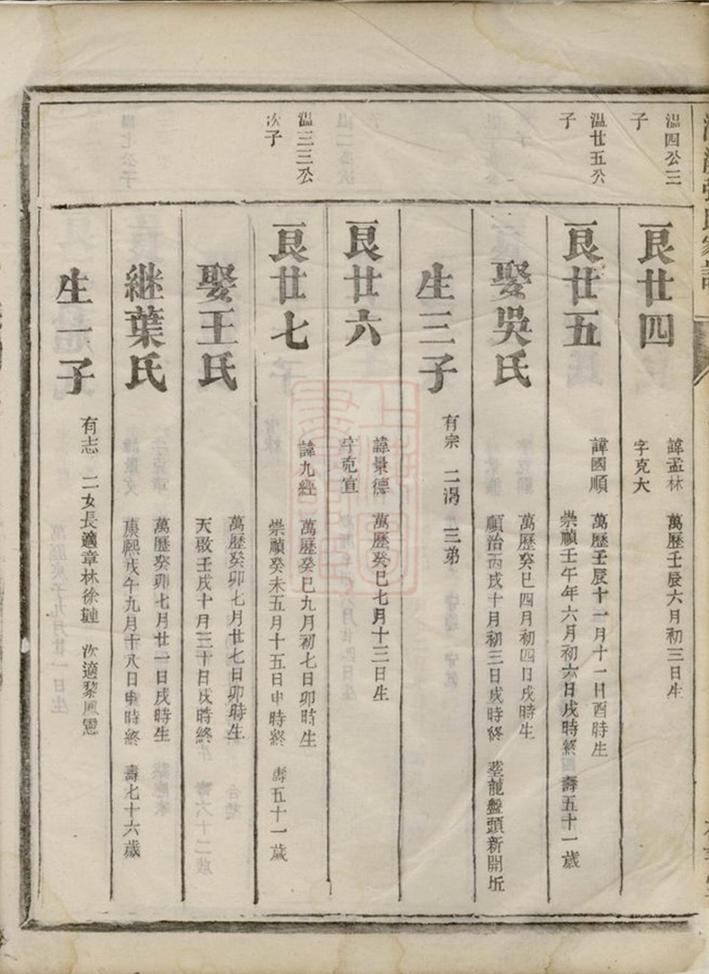 溫四公三
子
艮廿四
諱孟林 萬歷壬辰六月初三日生
字克大
溫廿五公
子
艮廿五
諱國順 萬歷壬辰十一月十一日酉時生
崇禎壬午年六月初六日戌時終 壽五十一歲
娶吳氏
萬歷癸巳四月初四日戌時生
順治丙戌十月初三日戌時終 塟龍盤頭新開坵
生三子
有宗 二潟 三弟
艮廿六
諱景德 萬歷癸巳七月十三日生
字克宣
溫三三公
次子
艮廿七
諱九經 萬歷癸巳九月初七日卯時生
崇禎癸未五月十五日申時終 壽五十一歲
娶王氏
萬歷癸卯七月廿七日卯時生
天啟壬戌十月三十日戌時終
継葉氏
萬歷癸卯七月廿一日戌時生
康熙戊午九月十八日申時終 壽七十六歲
生一子
有志 二女長適章林徐 次適黎鳳